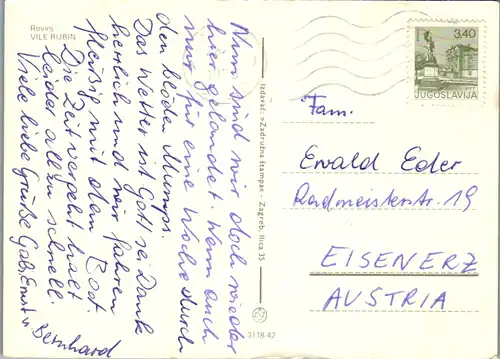 Rovinj
VILE RUBIN
Nun sind wir doch wieder
hier gelandet. Wenn auch
nur für eine Woche durch
den blöden Mumps.
Das Wetter ist Gott sei Dank
herrlich und wir fahren
fleißig mit dem Boot.
Die Zeit vergeht halt
leider allzu schnell.
Viele liebe Grüße Gabi, Ernst u.
Bernhard
Izdavač: »Zadružna štampa« - Zagreb, Ilica 35
31 18 42
3,40
JUGOSLAVIJA
Fam.
Ewald Eder
Radmeisterstr. 19
EISENERZ
AUSTRIA